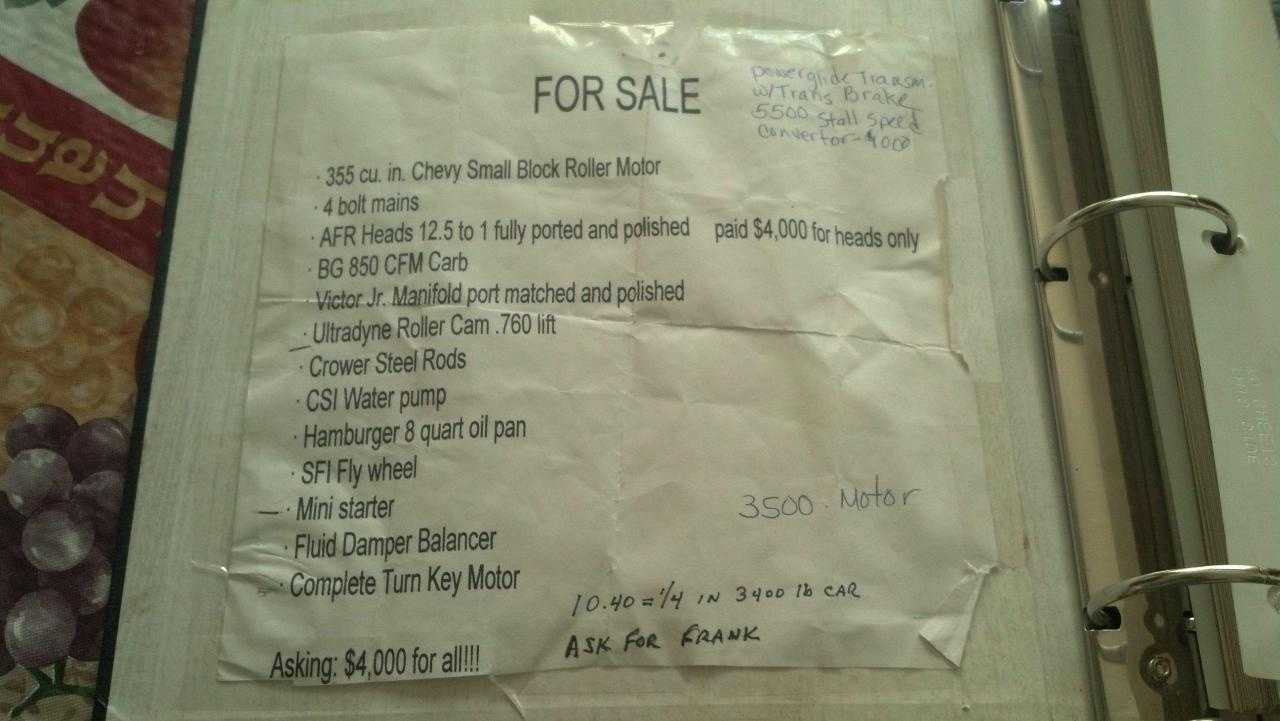 FOR SALE
powerglide Transm.
w/Trans Brake
5500 Stall Speed
Convertor-
· 355 cu. in. Chevy Small Block Roller Motor
· 4 bolt mains
· AFR Heads 12.5 to 1 fully ported and polished paid $4,000 for heads only
· BG 850 CFM Carb
· Victor Jr. Manifold port matched and polished
· Ultradyne Roller Cam .760 lift
· Crower Steel Rods
· CSI Water pump
· Hamburger 8 quart oil pan
· SFI Fly wheel
· Mini starter
· Fluid Damper Balancer
· Complete Turn Key Motor
3500. Motor
10.40 = 1/4 IN 3400 lb CAR
ASK FOR FRANK
Asking: $4,000 for all!!!